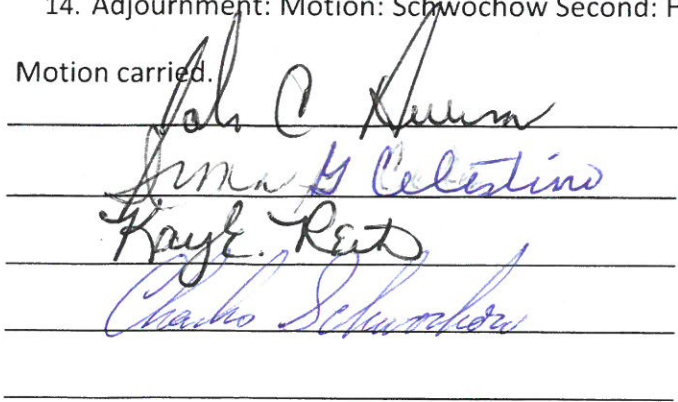 14. Adjournment: Motion: Schwochow Second: H
Motion carried.
John C
Irma G Celestino
Kay E. Reits
Charles Schwochow